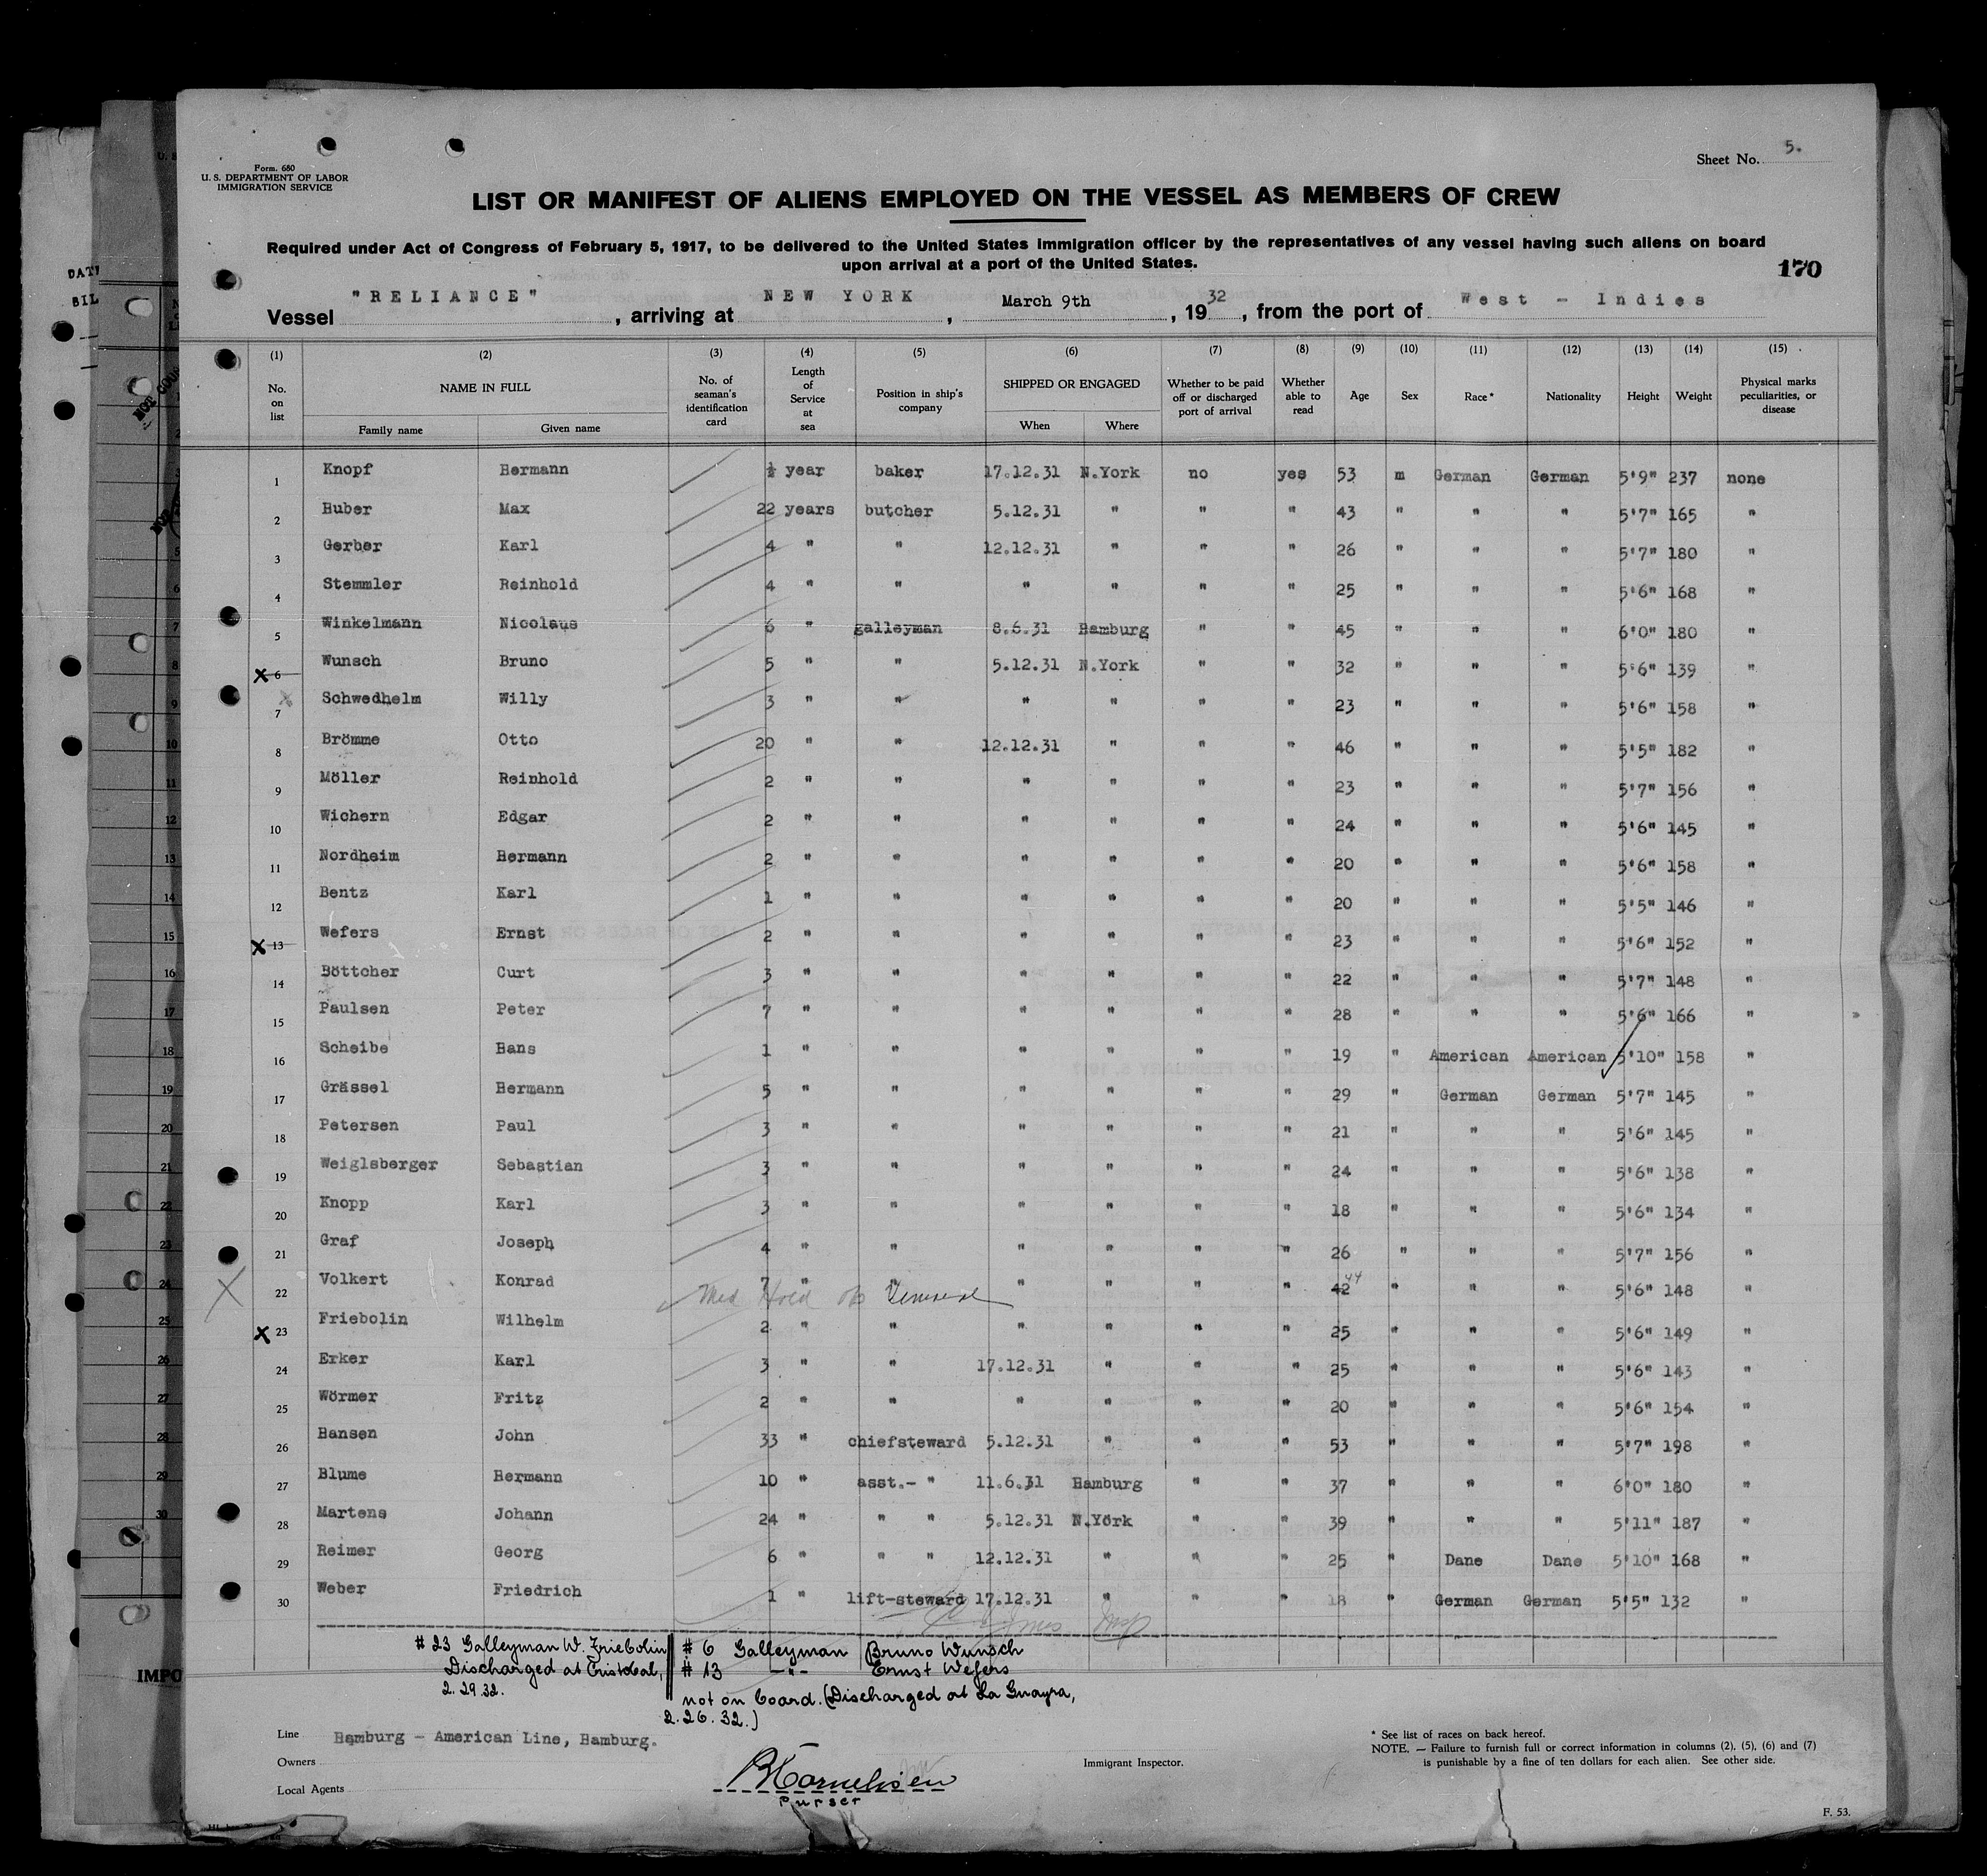 Form. 680
U. S. DEPARTMENT OF LABOR
IMMIGRATION SERVICE
Sheet No. 5.
LIST OR MANIFEST OF ALIENS EMPLOYED ON THE VESSEL AS MEMBERS OF CREW
Required under Act of Congress of February 5, 1917, to be delivered to the United States immigration officer by the representatives of any vessel having such aliens on board
upon arrival at a port of the United States.
170
Vessel "RELIANCE", arriving at NEW YORK, March 9th, 1932, from the port of West - Indies
(1) (2) (3) (4) (5) (6) (7) (8) (9) (10) (11) (12) (13) (14) (15)
No. on list NAME IN FULL Family name Given name No. of seaman's identification card Length of Service at sea Position in ship's company SHIPPED OR ENGAGED When Where Whether to be paid off or discharged port of arrival Whether able to read Age Sex Race* Nationality Height Weight Physical marks peculiarities, or disease
1 Knopf Hermann ½ year baker 17.12.31 N.York no yes 53 m German German 5'9" 237 none
2 Huber Max 22 years butcher 5.12.31 " " " 43 " " " 5'7" 165 "
3 Gerber Karl 4 " " 12.12.31 " " " 26 " " " 5'7" 180 "
4 Stemmler Reinhold 4 " " " " " " 25 " " " 5'6" 168 "
5 Winkelmann Nicolaus 6 " galleyman 8.6.31 Hamburg " " 45 " " " 6'0" 180 "
x 6 Wunsch Bruno 5 " " 5.12.31 N.York " " 32 " " " 5'6" 139 "
x 7 Schwedhelm Willy 3 " " " " " " 23 " " " 5'6" 158 "
8 Brömme Otto 20 " " 12.12.31 " " " 46 " " " 5'5" 182 "
9 Möller Reinhold 2 " " " " " " 23 " " " 5'7" 156 "
10 Wichern Edgar 2 " " " " " " 24 " " " 5'6" 145 "
11 Nordheim Hermann 2 " " " " " " 20 " " " 5'6" 158 "
12 Bentz Karl 1 " " " " " " 20 " " " 5'5" 146 "
x 13 Wefers Ernst 2 " " " " " " 23 " " " 5'6" 152 "
14 Böttcher Curt 3 " " " " " " 22 " " " 5'7" 148 "
15 Paulsen Peter 7 " " " " " " 28 " " " 5'6" 166 "
16 Scheibe Hans 1 " " " " " " 19 " American American 5'10" 158 "
17 Grässel Hermann 5 " " " " " " 29 " German German 5'7" 145 "
18 Petersen Paul 3 " " " " " " 21 " " " 5'6" 145 "
19 Weiglsberger Sebastian 3 " " " " " " 24 " " " 5'6" 138 "
20 Knopp Karl 3 " " " " " " 18 " " " 5'6" 134 "
21 Graf Joseph 4 " " " " " " 26 " " " 5'7" 156 "
x 22 Volkert Konrad 7 " " " " " " 42 44 " " " 5'6" 148 "
Med Hold
x 23 Friebolin Wilhelm 2 " " " " " " 25 " " " 5'6" 149 "
24 Erker Karl 3 " " 17.12.31 " " " 25 " " " 5'6" 143 "
25 Wörmer Fritz 2 " " " " " " 20 " " " 5'6" 154 "
26 Hansen John 33 " chiefsteward 5.12.31 " " " 53 " " " 5'7" 198 "
27 Blume Hermann 10 " asst.- " 11.6.31 Hamburg " " 37 " " " 6'0" 180 "
28 Martens Johann 24 " " " 5.12.31 N.York " " 39 " " " 5'11" 187 "
29 Reimer Georg 6 " " " 12.12.31 " " " 25 " Dane Dane 5'10" 168 "
30 Weber Friedrich 1 " lift-steward 17.12.31 " " " 18 " German German 5'5" 132 "
# 23 Galleyman W. Friebolin
Discharged at Cristobal,
2. 29. 32.
# 6 Galleyman Bruno Wunsch
# 13 -"- Ernst Wefers
not on board. (Discharged at La Guayra,
2. 26. 32.)
Line Hamburg - American Line, Hamburg.
Owners
Local Agents
Cornelissen
Purser
Immigrant Inspector.
* See list of races on back hereof.
NOTE. — Failure to furnish full or correct information in columns (2), (5), (6) and (7)
is punishable by a fine of ten dollars for each alien. See other side.
F. 53.
IMPO